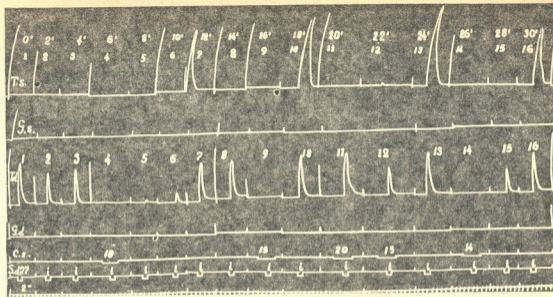 0' 2' 4' 6' 8' 10' 12' 14' 16' 18' 20' 22' 24' 26' 28' 30'
1 2 3 4 5 6 7 8 9 10 11 12 13 14 15 16
T.s.
G.s.
1 2 3 4 5 6 7 8 9 10 11 12 13 14 15 16
G.d.
C.s. 18 18 20 15 14
S.d.
2"